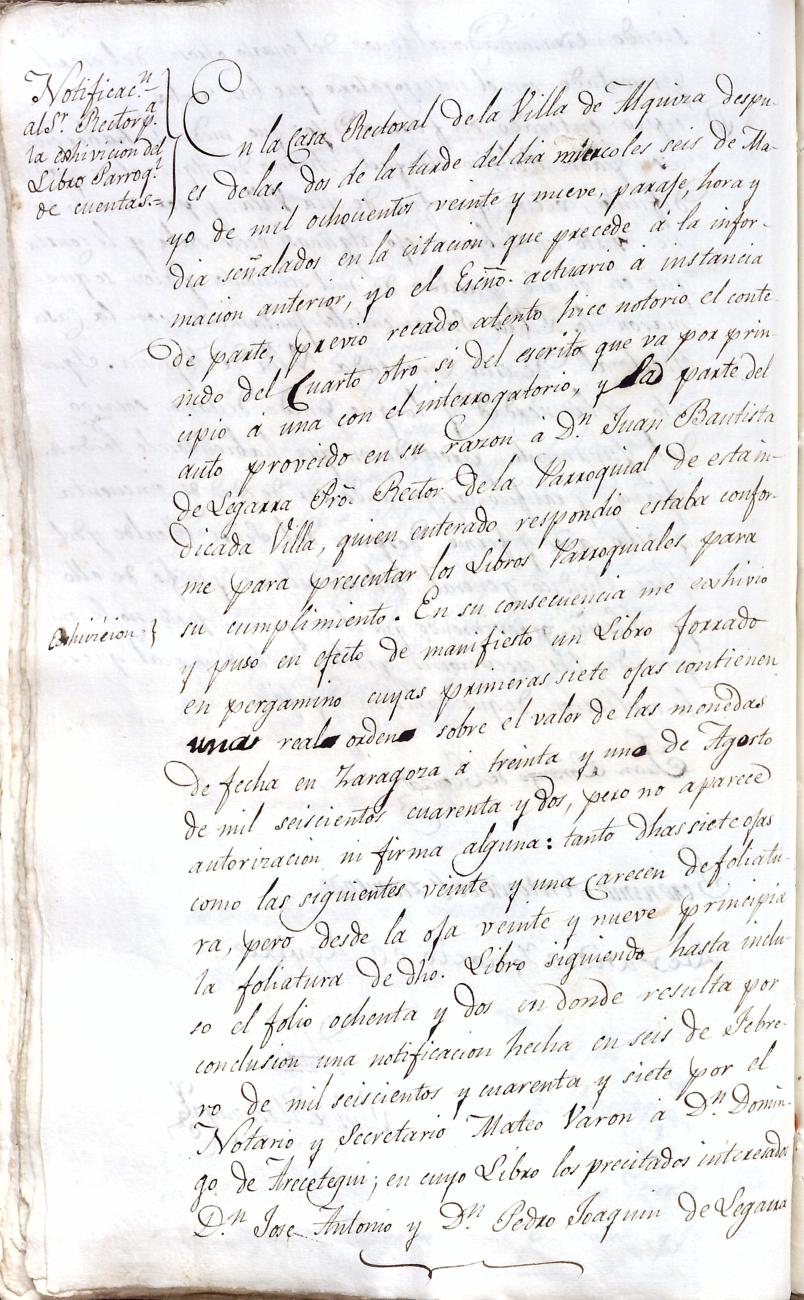 Notificac.n
al S.r Rector p.a
la exhivicion del
Libro Parroq.l
de cuentas.=
En la Casa Rectoral de la Villa de Alquiza despu-
es de las dos de la tarde del dia miercoles seis de Ma-
yo de mil ochocientos veinte y nueve, paraje, hora y
dia señalados en la citacion que precede á la infor-
macion anterior, yo el Esc̃no. actuario á instancia
de parte, previo recado atento hice notorio el conte-
nido del Cuarto otro si del escrito que va por prin-
cipio á una con el interrogatorio, y la parte del
auto proveido en su razon á D.n Juan Bautista
de Legarra Pro͂. Rector de la Parroquial de esta in-
dicada Villa, quien enterado respondio estaba confor-
me para presentar los Libros Parroquiales para
su cumplimiento. En su consecuencia me exhivio
Exhivicion }
y puso en efecto de manifiesto un Libro forrado
en pergamino cuyas primeras siete ojas contienen
una real orden sobre el valor de las monedas
de fecha en Zaragoza á treinta y uno de Agosto
de mil seiscientos cuarenta y dos, pero no aparece
autorizacion ni firma alguna: tanto dhas siete ojas
como las siguientes veinte y una carecen de foliatu-
ra, pero desde la oja veinte y nueve principia
la foliatura de dho. Libro siguiendo hasta inclu-
so el folio ochenta y dos en donde resulta por
conclusion una notificacion hecha en seis de Febre-
ro de mil seiscientos y cuarenta y siete por el
Notario y Secretario Mateo Varon á D.n Domin-
go de Arecetegui; en cuyo Libro los precitados interesados
D.n Jose Antonio y D.n Pedro Joaquin de Legarra